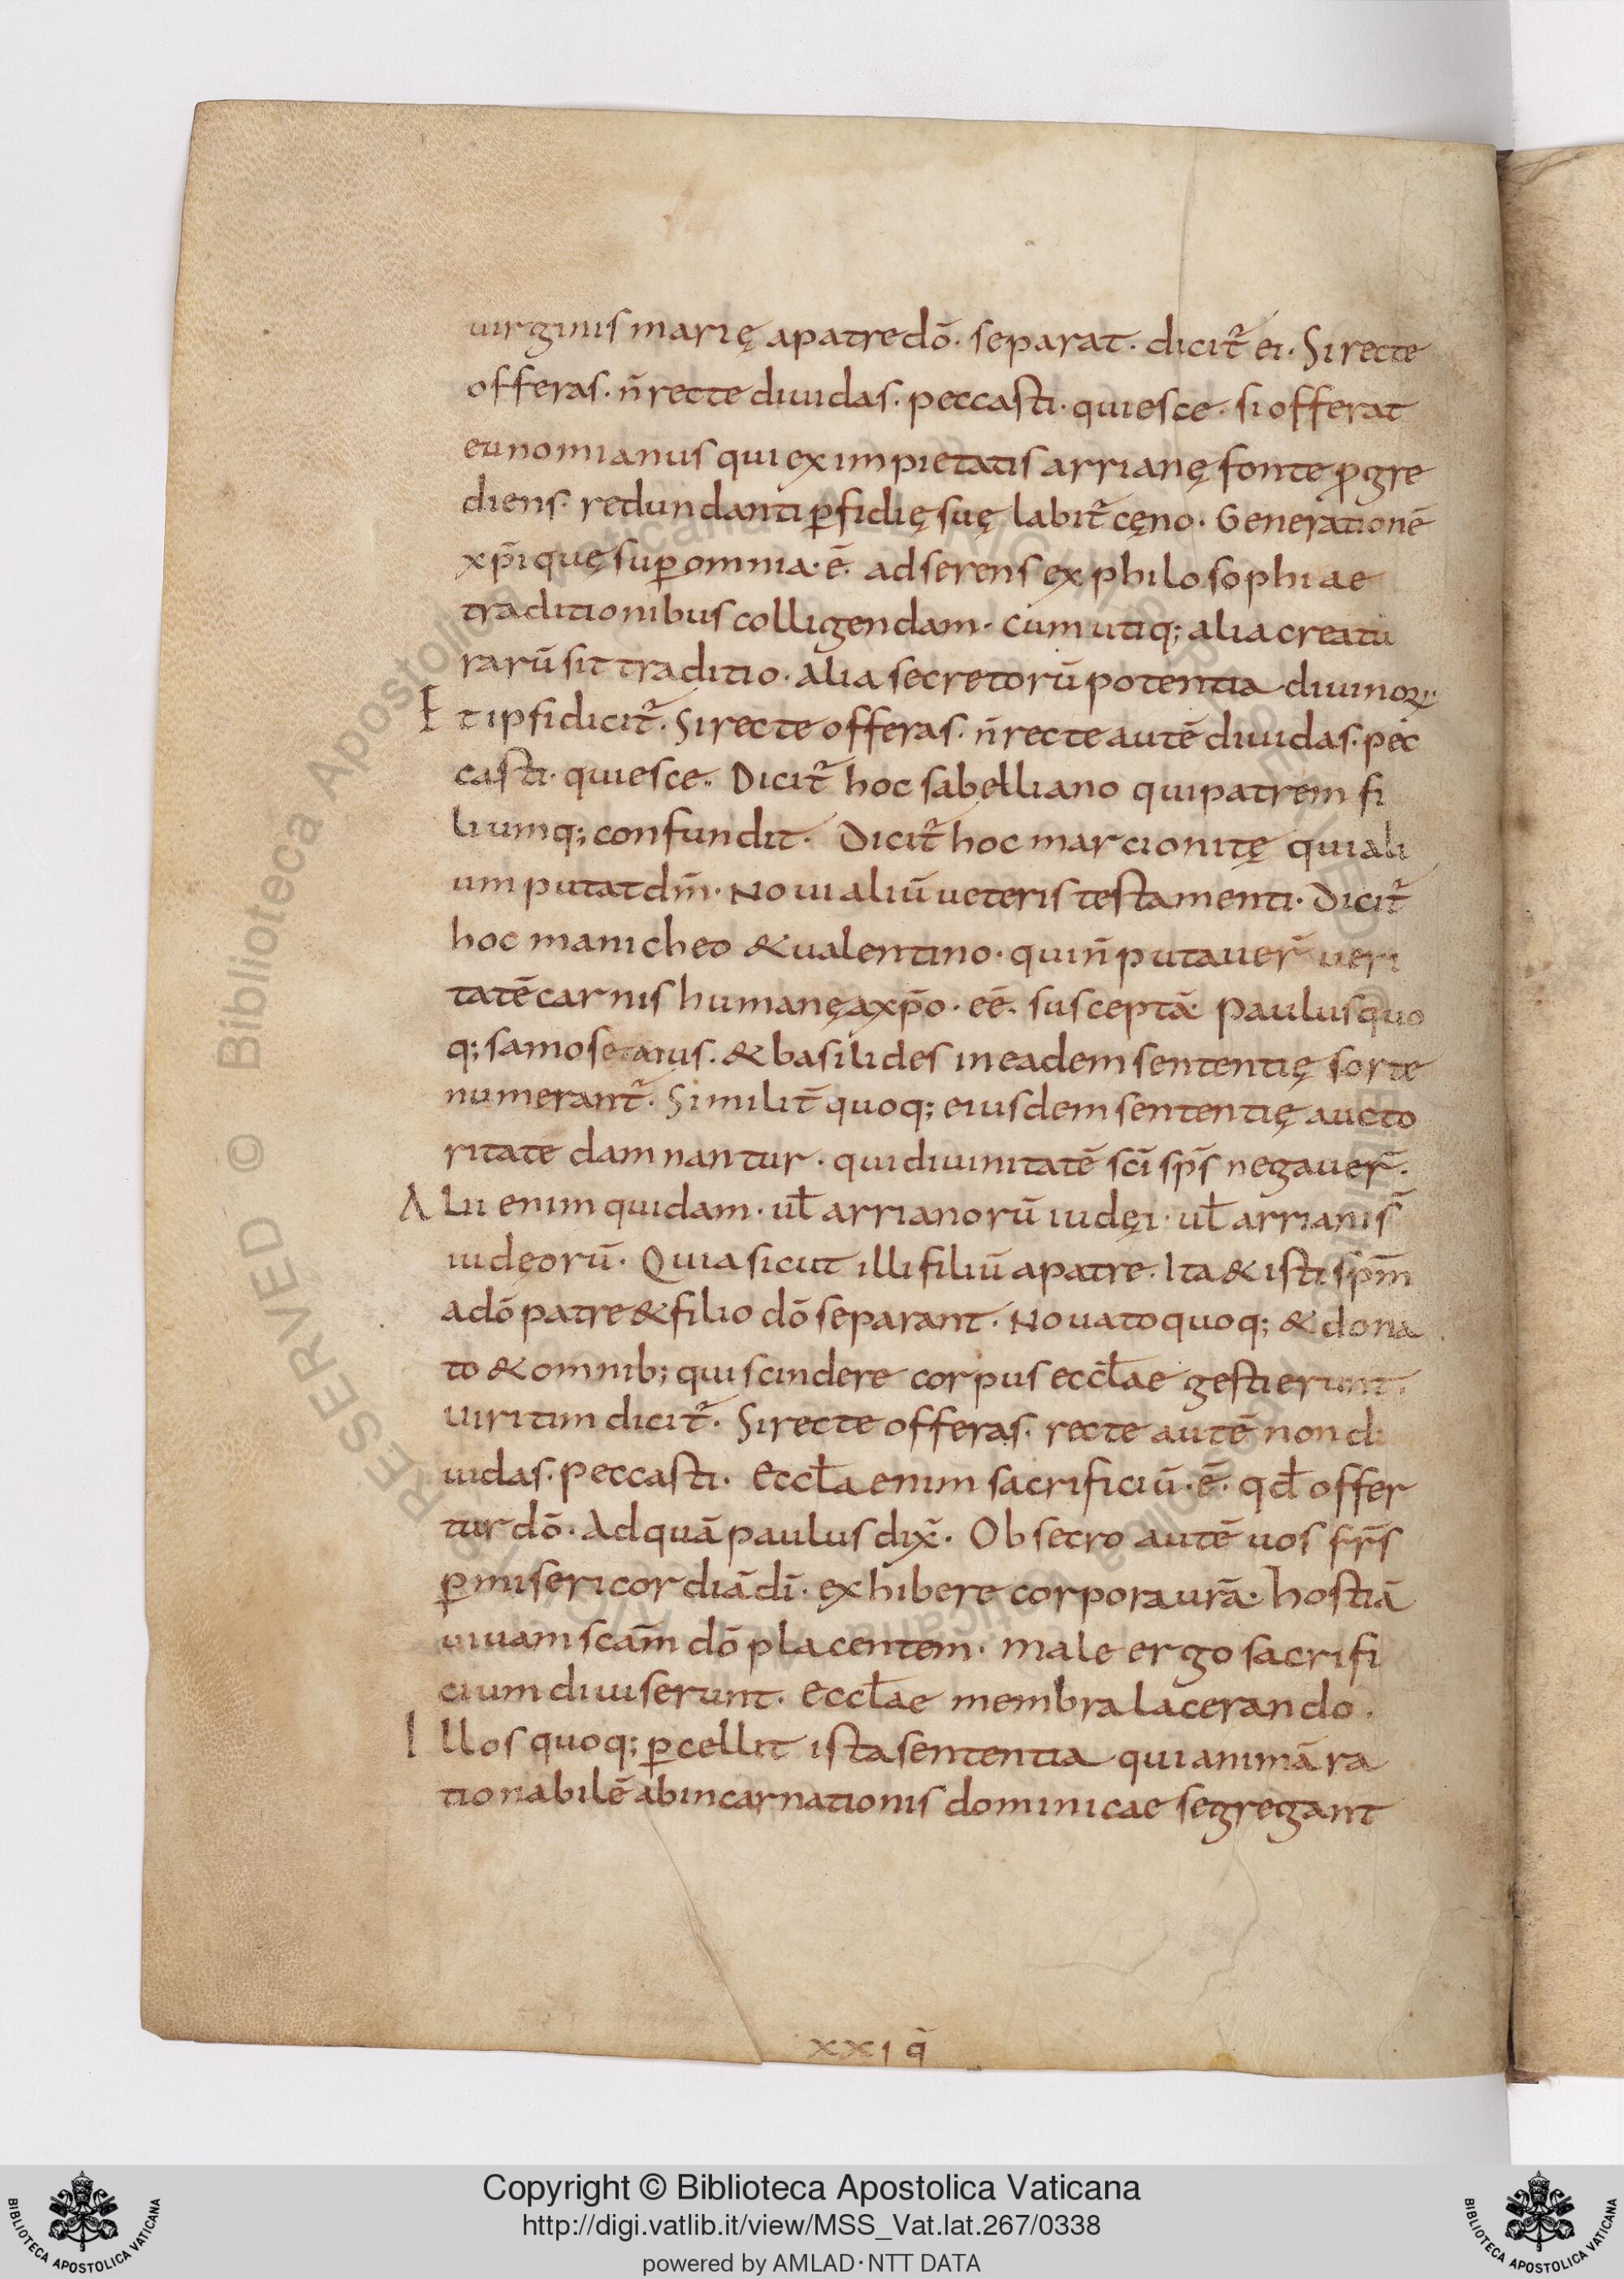 uirginis marię apatre dō. separat. dicit̄ ei. Si recte
offeras. n̄ recte diuidas. peccasti. quiesce. si offerat
eunomianus qui ex impietatis arrianę fonte ꝓgre
diens. redundanti ꝑfidię suę labit̄ cęno. Generationē
xp̄i quę suꝑ omnia. ē. adserens ex philosophiae
traditionibus colligendam. cum utiq; alia creatu
rarū sit traditio. alia secretorū potentia diuinoꝝ.
Et ipsi dicit̄. Si recte offeras. n̄ recte autē diuidas. pec
casti. quiesce. Dicit̄ hoc sabelliano qui patrem fi
liumq; confundit. Dicit̄ hoc marcionitę qui ali
um putat dm̄. Noui aliū ueteris testamenti. Dicit̄
hoc manicheo & ualentino. qui n̄ putauer̄ ueri
tatē carnis humanę axp̄o. eē. susceptā. Paulus quo
q; samosetanus. & basilides in eadem sententię sorte
numerant̄. Similit̄ quoq; eiusdem sententię aucto
ritate damnantur. qui diuinitatē sc̄i sp̄s negauer̄.
Alii enim quidam. ul̄ arrianorū iudęi. ul̄ arrianis̄
iudęorū. Quia sicut illi filiū apatre. Ita & isti sp̄m
adō patre & filio dō separant. Nouato quoq; & dona
to & omnib; qui scindere corpus eccl̄ae gestierunt.
uiritim dicit̄. Si recte offeras. recte autē non di
uidas. peccasti. Eccl̄a enim sacrificiū. ē. qd̄ offer
tur dō. Ad quā paulus dix̄. Obsecro autē uos fr̄s
ꝑ misericordiā dī. exhibere corpora urā. hostiā
uiuam scām dō placentem. Male ergo sacrifi
cium diuiserunt. Eccl̄ae membra lacerando.
Illos quoq; ꝑcellit ista sententia qui animā ra
tionabilē ab incarnationis dominicae segregant
xxi q̄
RESERVED © Biblioteca Apostolica Vaticana
Copyright © Biblioteca Apostolica Vaticana
http://digi.vatlib.it/view/MSS_Vat.lat.267/0338
powered by AMLAD·NTT DATA
BIBLIOTECA APOSTOLICA VATICANA
BIBLIOTECA APOSTOLICA VATICANA